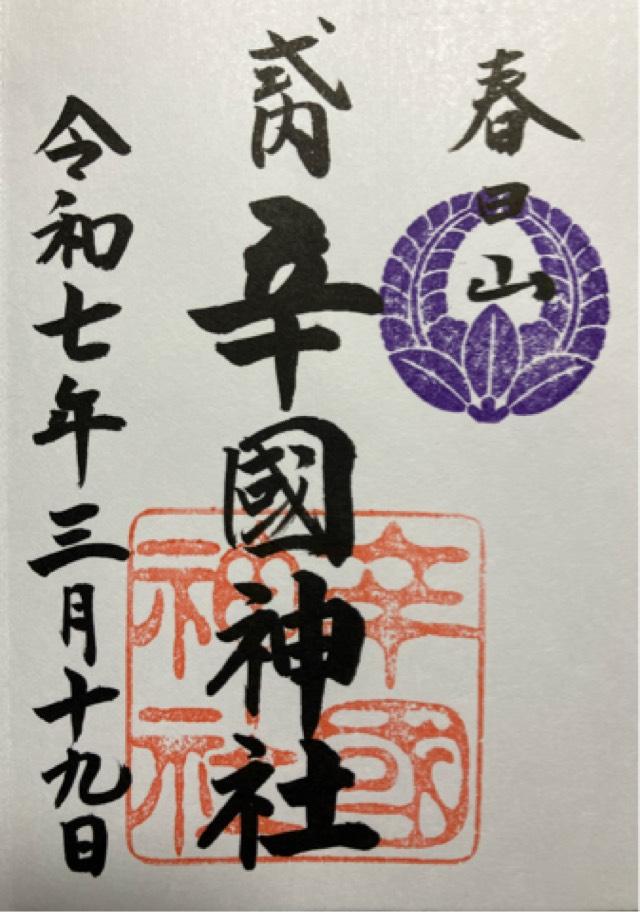 春日山
式内
辛國神社
辛國神社
令和七年三月十九日